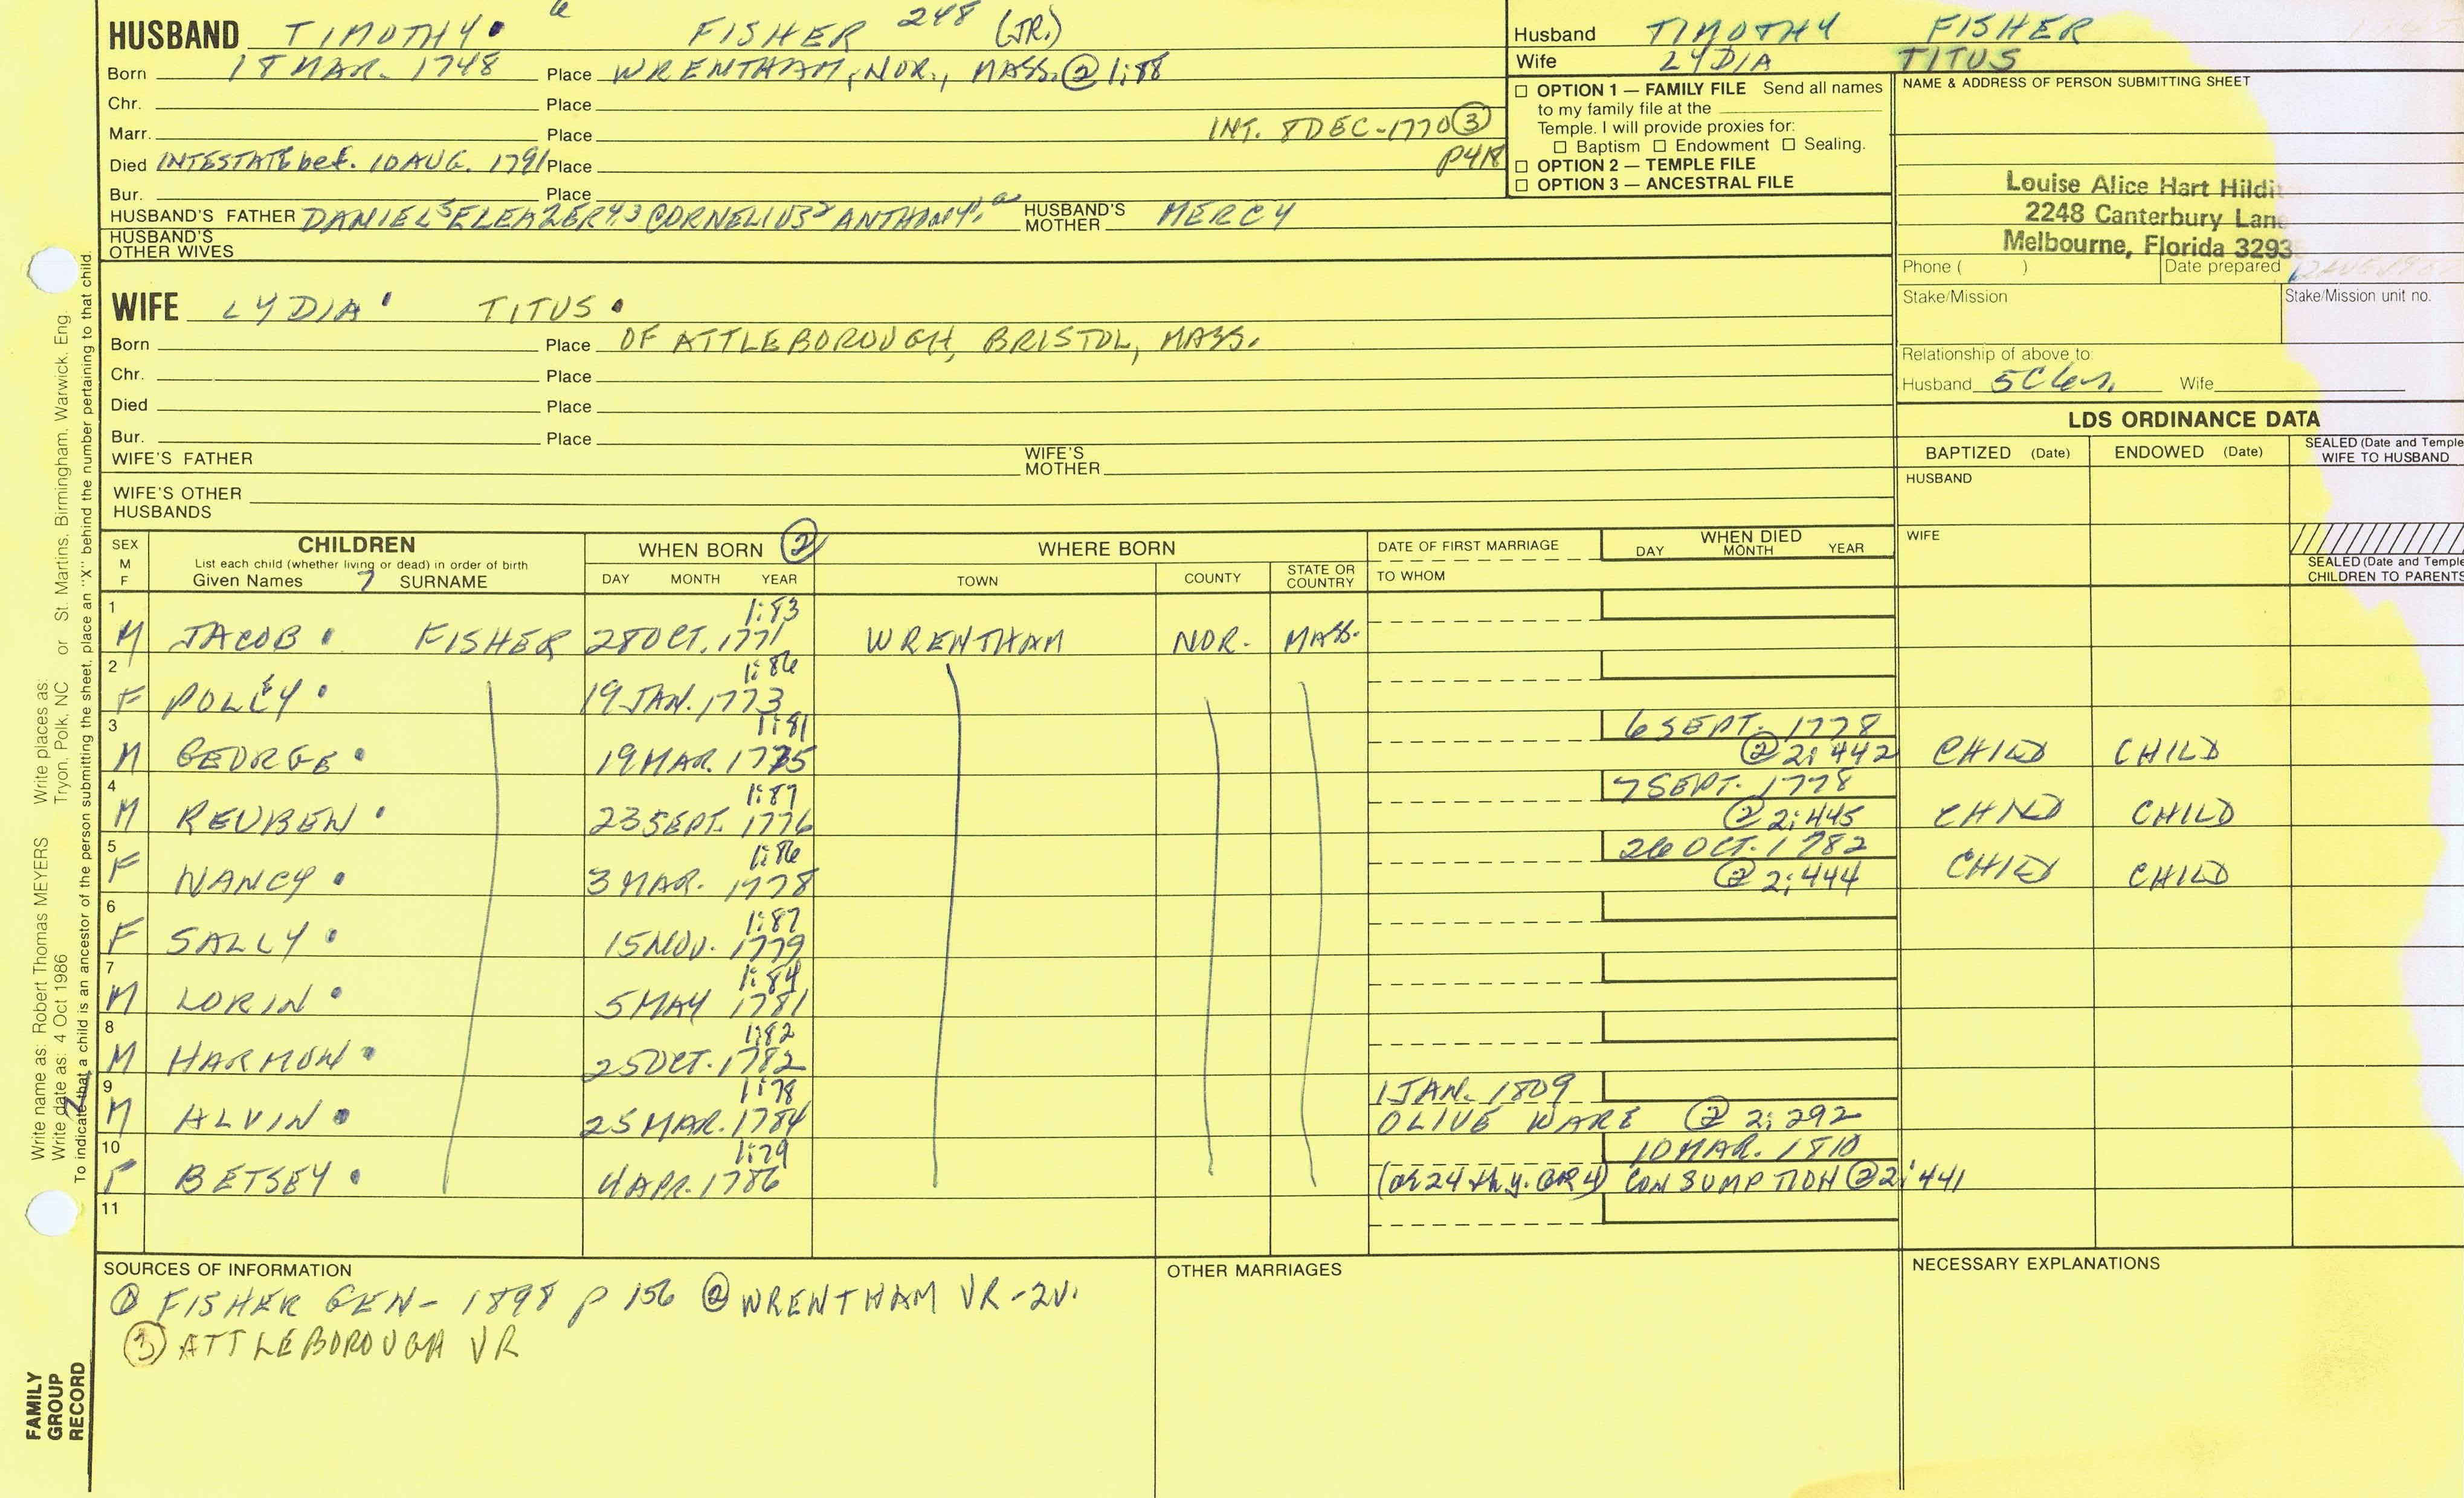 HUSBAND TIMOTHY. 6 FISHER 248 (JR.)
Born 18 MAR. 1748 Place WRENTHAM, NOR., MASS. ② 1:88
Chr. Place
Marr. Place INT. 8 DEC-1770 ③
Died INTESTATE bef. 10 AUG. 1791 Place P418
Bur. Place
HUSBAND'S FATHER DANIEL5 ELEAZER4,3 CORNELIUS2 ANTHONY1,a HUSBAND'S MOTHER MERCY
HUSBAND'S OTHER WIVES
Husband TIMOTHY FISHER
Wife LYDIA TITUS
☐ OPTION 1 — FAMILY FILE Send all names
to my family file at the
Temple. I will provide proxies for:
☐ Baptism ☐ Endowment ☐ Sealing.
☐ OPTION 2 — TEMPLE FILE
☐ OPTION 3 — ANCESTRAL FILE
NAME & ADDRESS OF PERSON SUBMITTING SHEET
Louise Alice Hart
2248 Canterbury Lane
Melbourne, Florida 3293
Phone ( ) Date prepared
Stake/Mission Stake/Mission unit no.
Relationship of above to:
Husband 5C Wife
WIFE LYDIA TITUS.
Born Place OF ATTLEBOROUGH, BRISTOL, MASS.
Chr. Place
Died Place
Bur. Place
WIFE'S FATHER WIFE'S MOTHER
WIFE'S OTHER HUSBANDS
LDS ORDINANCE DATA
BAPTIZED (Date) ENDOWED (Date) SEALED (Date and Temple
WIFE TO HUSBAND
HUSBAND
WIFE
SEALED (Date and Temple
CHILDREN TO PARENTS
SEX M F
CHILDREN
List each child (whether living or dead) in order of birth
Given Names 7 SURNAME
WHEN BORN ②
DAY MONTH YEAR
WHERE BORN
TOWN COUNTY STATE OR COUNTRY
DATE OF FIRST MARRIAGE
TO WHOM
WHEN DIED
DAY MONTH YEAR
1 1:83
M JACOB. FISHER 28 OCT. 1771 WRENTHAM NOR. MASS.
2 1:86
F POLLEY. 19 JAN. 1773
3 1:81 6 SEPT. 1778
M GEORGE. 19 MAR. 1775 ② 2:442 CHILD CHILD
4 1:87 7 SEPT. 1778
M REUBEN. 23 SEPT. 1776 ② 2:445 CHILD CHILD
5 1:86 26 OCT. 1782
F NANCY. 3 MAR. 1778 ② 2:444 CHILD CHILD
6 1:87
F SALLY. 15 NOV. 1779
7 1:84
M LORIN. 5 MAY 1781
8 1:82
M HARMON. 25 OCT. 1782
9 1:78 1 JAN. 1809
M ALVIN. 25 MAR. 1784 OLIVE WARE ② 2:292
10 1:79 10 MAR. 1810
F BETSEY. 4 APR. 1786 (or 24th y. GR4) CONSUMPTION ② 2:441
11
SOURCES OF INFORMATION
① FISHER GEN- 1898 p 156 ② WRENTHAM VR-2V.
③ ATTLEBOROUGH VR
OTHER MARRIAGES
NECESSARY EXPLANATIONS
Write name as: Robert Thomas MEYERS Write places as: St. Martins, Birmingham, Warwick, Eng.
Write date as: 4 Oct 1986 Tryon, Polk, NC or
To indicate that a child is an ancestor of the person submitting the sheet, place an "X" behind the number pertaining to that child.
FAMILY
GROUP
RECORD